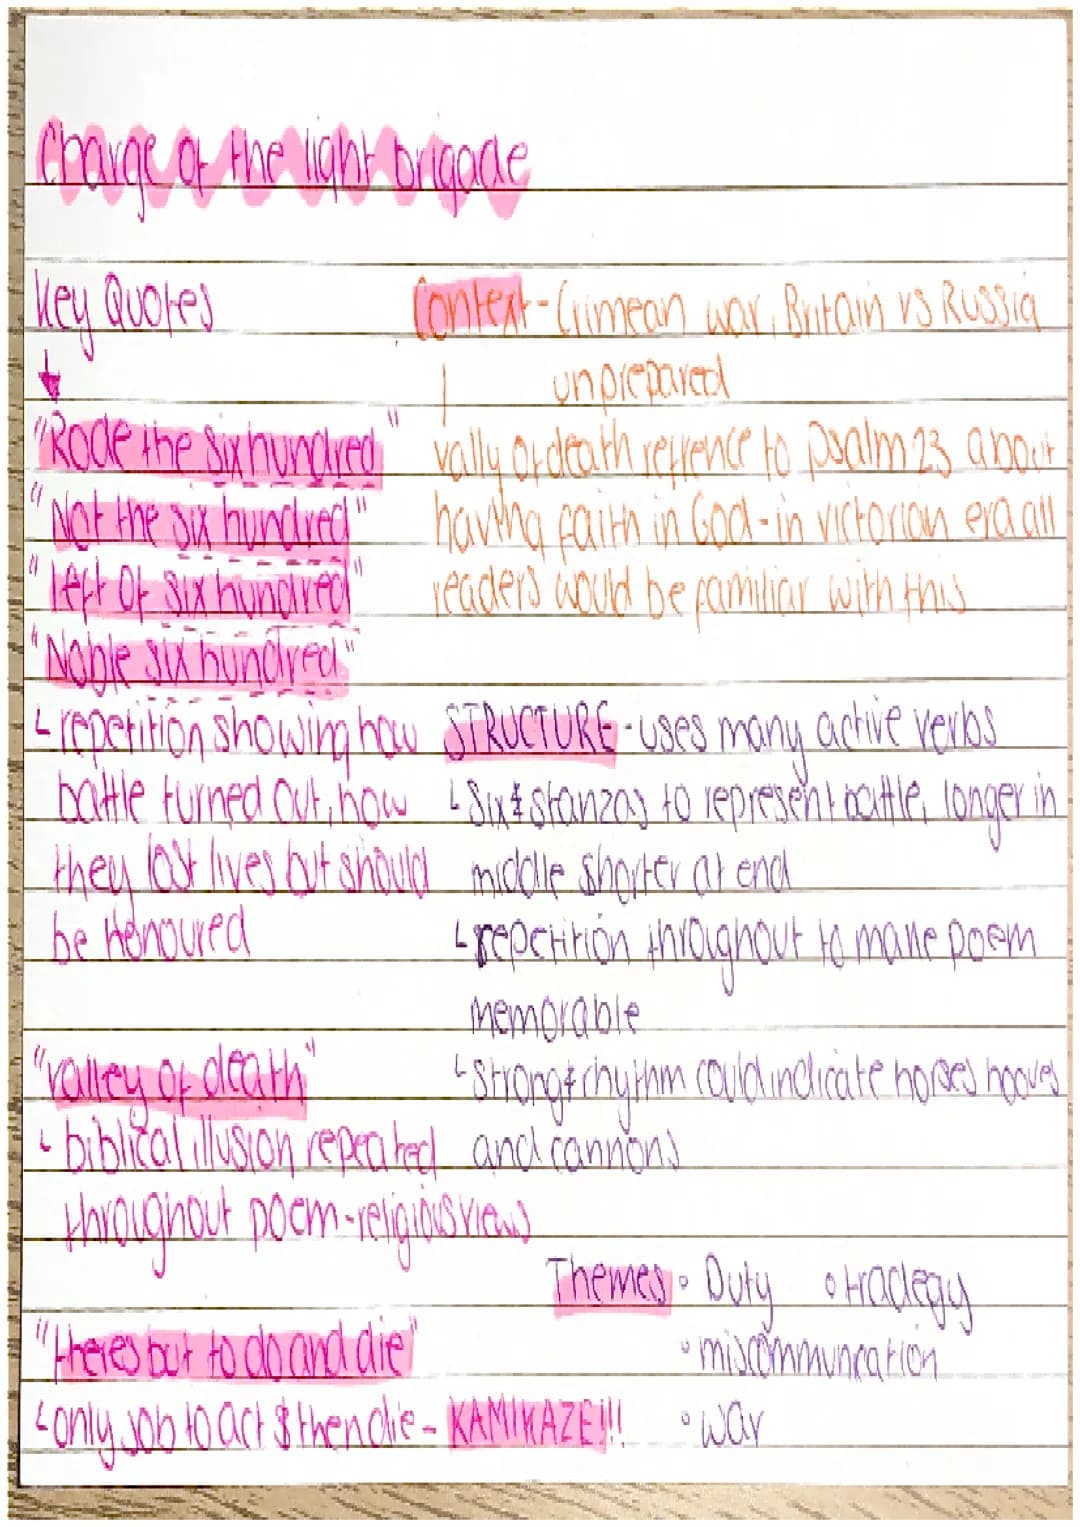 Charge of the light brigade
Key Quotes
"Rode the six hundred"
"Not the six hundred"
"left of six hundred"
"Noble six hundred"
repetition showing how
battle turned out, how
they lost lives but should
be honoured
"valley of death"
biblical illusion repeated
throughout poem-religious views
"theres but to do and die"
only job to act & then die - KAMIKAZE!!!
Context - Crimean war, Britain vs Russia
unprepared
vally of death refrence to psalm 23 about
having faith in God - in victorian era all
readers would be familiar with this
STRUCTURE - uses many active verbs
Six stanzas to represent battle, longer in
middle shorter at end
repetition throughout to make poem
memorable
Strong rhythm could indicate horses hooves
and cannons
Themes • Duty • tradegy
• miscommuncation
• war